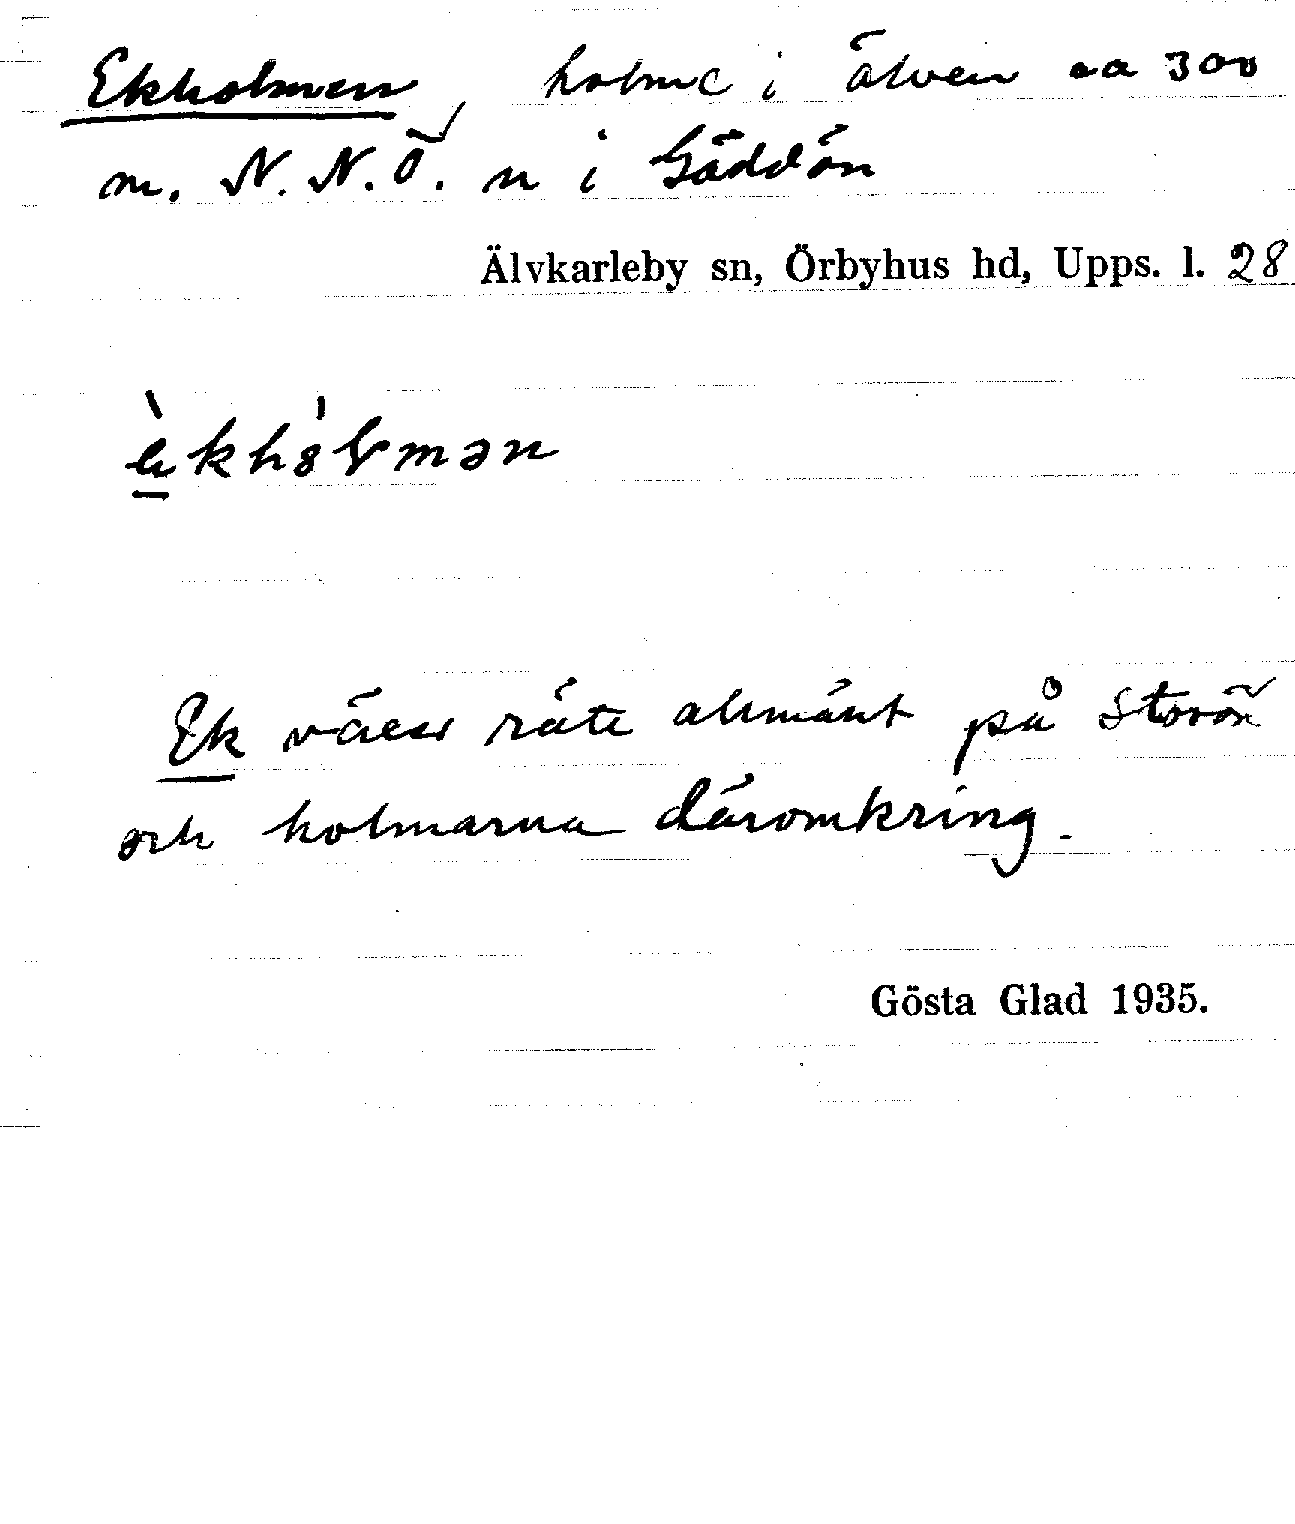 Ekholmen, holme i älven ca 300
m. N. N. Ö. n i Gäddön
Älvkarleby sn, Örbyhus hd, Upps. l. 28
èkhólmən
Ek växer rätt allmänt på Storön
och holmarna däromkring.
Gösta Glad 1935.